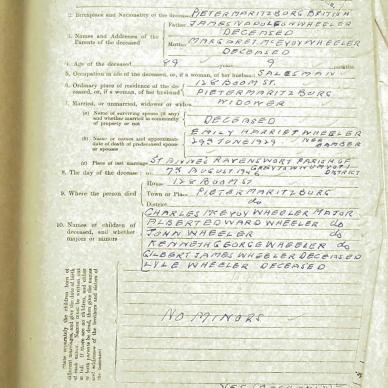 2. Birthplace and Nationality of the deceased PIETERMARITZBURG BRITISH
3. Names and Addresses of the Parents of the deceased
Father JAMES NAPOLEON WHEELER
DECEASED
Mother MARGARET McEVOY WHEELER
DECEASED
4. Age of the deceased 89 years 9 months
5. Occupation in life of the deceased, or, if a woman, of her husband SALESMAN
6. Ordinary place of residence of the deceased, or, if a woman, of her husband 128 BOOM ST.
PIETERMARITZBURG
7. Married, or unmarried, widower or widow WIDOWER
(a) Name of surviving spouse (if any) and whether married in community of property or not
DECEASED
(b) Name and approximate date of death of predeceased spouse or spouses
EMILY HARRIET WHEELER
29TH JUNE 1929
(c) Place of last marriage ST ANNES RAVENSWORT PARISH OF
DISTRICT
8. The day of the decease on 7TH AUGUST
9. Where the person died
House 128 BOOM ST
Town or Place PIETERMARITZBURG
District do
10. Names of children of deceased, and whether majors or minors
CHARLES McEVOY WHEELER MAJOR
ALBERT EDWARD WHEELER do
JOHN WHEELER do
KENNETH GEORGE WHEELER do
GILBERT JAMES WHEELER DECEASED
LYLE WHEELER DECEASED
NO MINORS